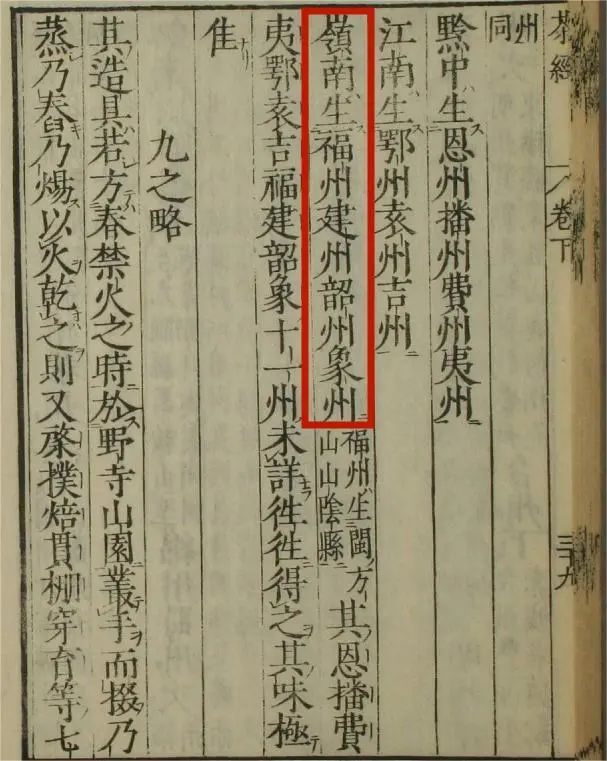 茶經 卷下 三十九
州同
黔中生恩州播州費州夷州
江南生鄂州袁州吉州
嶺南生福州建州韶州象州福州生閩方山山陰縣其恩播費
夷鄂袁吉福建韶象十一州未詳徃徃得之其味極
佳
九之略
其造具若方春禁火之時於野寺山園叢手而掇乃
蒸乃舂乃煬以火乾之則又棨撲焙貫棚穿育等七